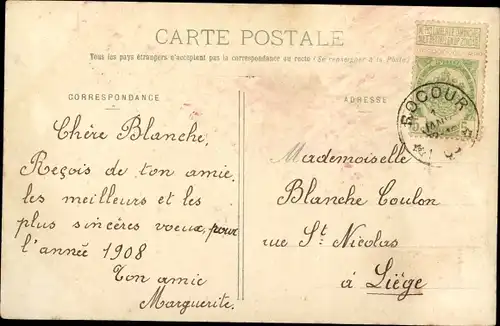 CARTE POSTALE
Tous les pays étrangers n'acceptent pas la correspondance au recto (Se renseigner à la Poste)
CORRESPONDANCE
ADRESSE
ROCOUR
JANV
Chère Blanche,
Reçois de ton amie
les meilleurs et les
plus sincères voeux, pour
l'année 1908
Ton amie
Marguerite.
Mademoiselle
Blanche Coulon
rue St Nicolas
à Liège